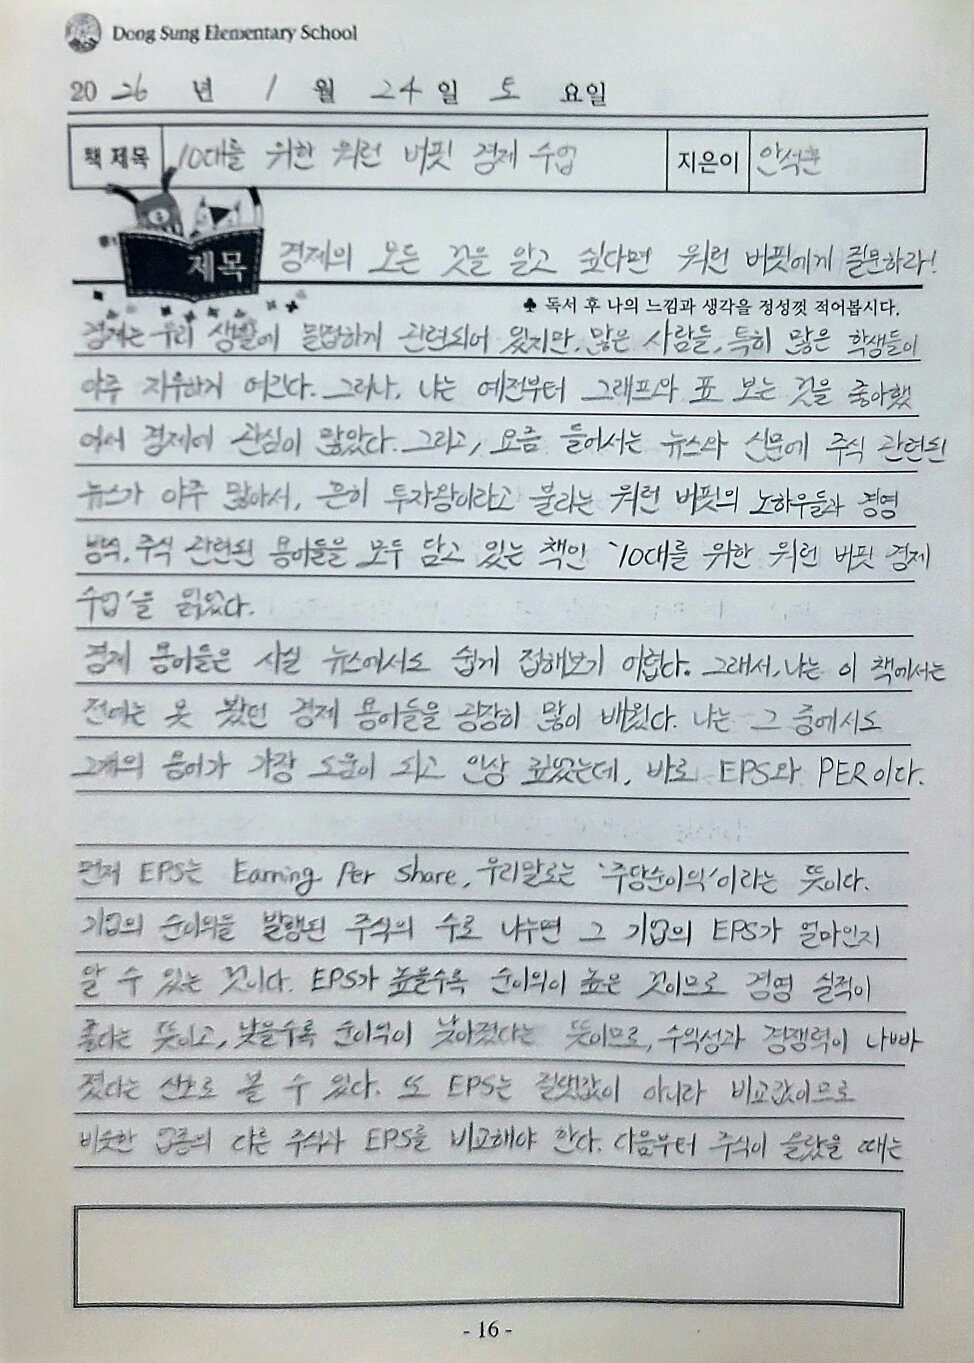 Dong Sung Elementary School
20 26 년 1 월 24 일 토 요일
책 제목 10대를 위한 워런 버핏 경제 수업 지은이 안석훈
제목 경제의 모든 것을 알고 싶다면 워런 버핏에게 질문하라!
♣ 독서 후 나의 느낌과 생각을 정성껏 적어봅시다.
경제는 우리 생활에 밀접하게 관련되어 있지만, 많은 사람들, 특히 많은 학생들이
아주 지루하게 여긴다. 그러나, 나는 예전부터 그래프와 표 보는 것을 좋아했
어서 경제에 관심이 많았다. 그리고, 요즘 들어서는 뉴스와 신문에 주식 관련된
뉴스가 아주 많아서, 흔히 투자왕이라고 불리는 워런 버핏의 노하우들과 경영
방식, 주식 관련된 용어들을 모두 담고 있는 책인 '10대를 위한 워런 버핏 경제
수업'을 읽었다.
경제 용어들은 사실 뉴스에서도 쉽게 접해보기 어렵다. 그래서, 나는 이 책에서는
전에는 못 봤던 경제 용어들을 굉장히 많이 배웠다. 나는 그 중에서도
2개의 용어가 가장 도움이 되고 인상 깊었는데, 바로 EPS와 PER이다.
먼저 EPS는 Earning Per Share, 우리말로는 '주당순이익'이라는 뜻이다.
기업의 순이익을 발행된 주식의 수로 나누면 그 기업의 EPS가 얼마인지
알 수 있는 것이다. EPS가 높을수록 순이익이 높은 것이므로 경영 실적이
좋다는 뜻이고, 낮을수록 순이익이 낮아졌다는 뜻이므로, 수익성과 경쟁력이 나빠
졌다는 신호로 볼 수 있다. 또 EPS는 절댓값이 아니라 비교값이므로
비슷한 업종의 다른 주식과 EPS를 비교해야 한다. 다음부터 주식이 올랐을 때는
- 16 -